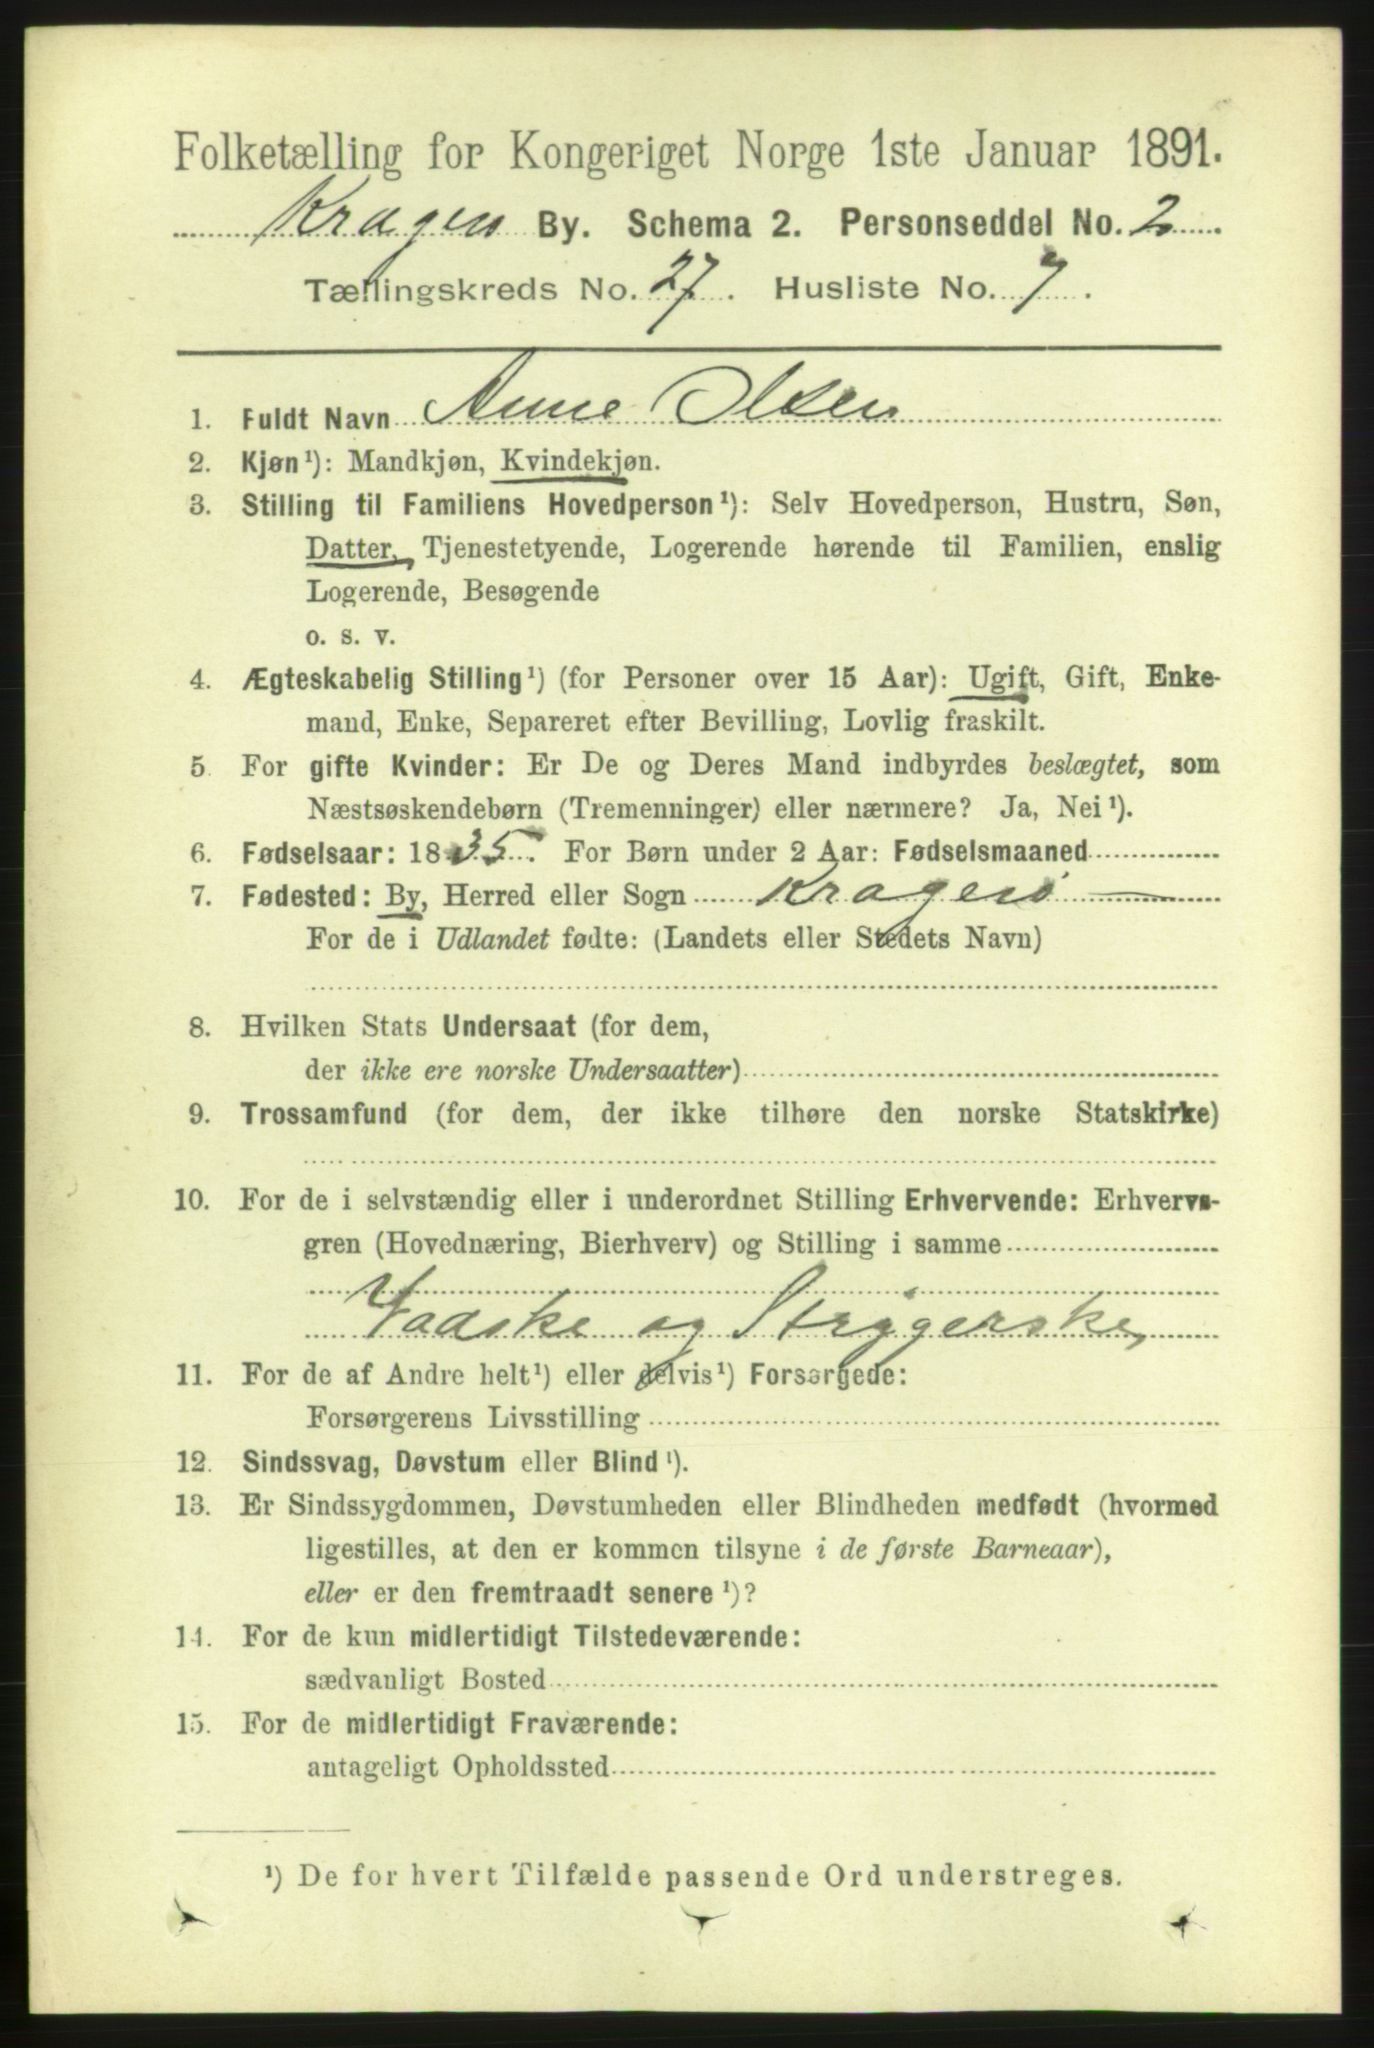 Folketælling for Kongeriget Norge 1ste Januar 1891.
Kragerø By. Schema 2. Personseddel No. 2
Tællingskreds No. 27. Husliste No. 7.
1. Fuldt Navn Anne Olsen
2. Kjøn¹): Mandkjøn, Kvindekjøn.
3. Stilling til Familiens Hovedperson¹): Selv Hovedperson, Hustru, Søn,
Datter, Tjenestetyende, Logerende hørende til Familien, enslig
Logerende, Besøgende
o. s. v.
4. Ægteskabelig Stilling¹) (for Personer over 15 Aar): Ugift, Gift, Enke-
mand, Enke, Separeret efter Bevilling, Lovlig fraskilt.
5. For gifte Kvinder: Er De og Deres Mand indbyrdes beslægtet, som
Næstsøskendebørn (Tremenninger) eller nærmere? Ja, Nei¹).
6. Fødselsaar: 1835. For Børn under 2 Aar: Fødselsmaaned
7. Fødested: By, Herred eller Sogn Kragerø
For de i Udlandet fødte: (Landets eller Stedets Navn)
8. Hvilken Stats Undersaat (for dem,
der ikke ere norske Undersaatter)
9. Trossamfund (for dem, der ikke tilhøre den norske Statskirke)
10. For de i selvstændig eller i underordnet Stilling Erhvervende: Erhvervs-
gren (Hovednæring, Bierhverv) og Stilling i samme
Vadske og Strygerske,
11. For de af Andre helt¹) eller delvis¹) Forsørgede:
Forsørgerens Livsstilling
12. Sindssvag, Døvstum eller Blind¹).
13. Er Sindssygdommen, Døvstumheden eller Blindheden medfødt (hvormed
ligestilles, at den er kommen tilsyne i de første Barneaar),
eller er den fremtraadt senere¹)?
14. For de kun midlertidigt Tilstedeværende:
sædvanligt Bosted
15. For de midlertidigt Fraværende:
antageligt Opholdssted
¹) De for hvert Tilfælde passende Ord understreges.